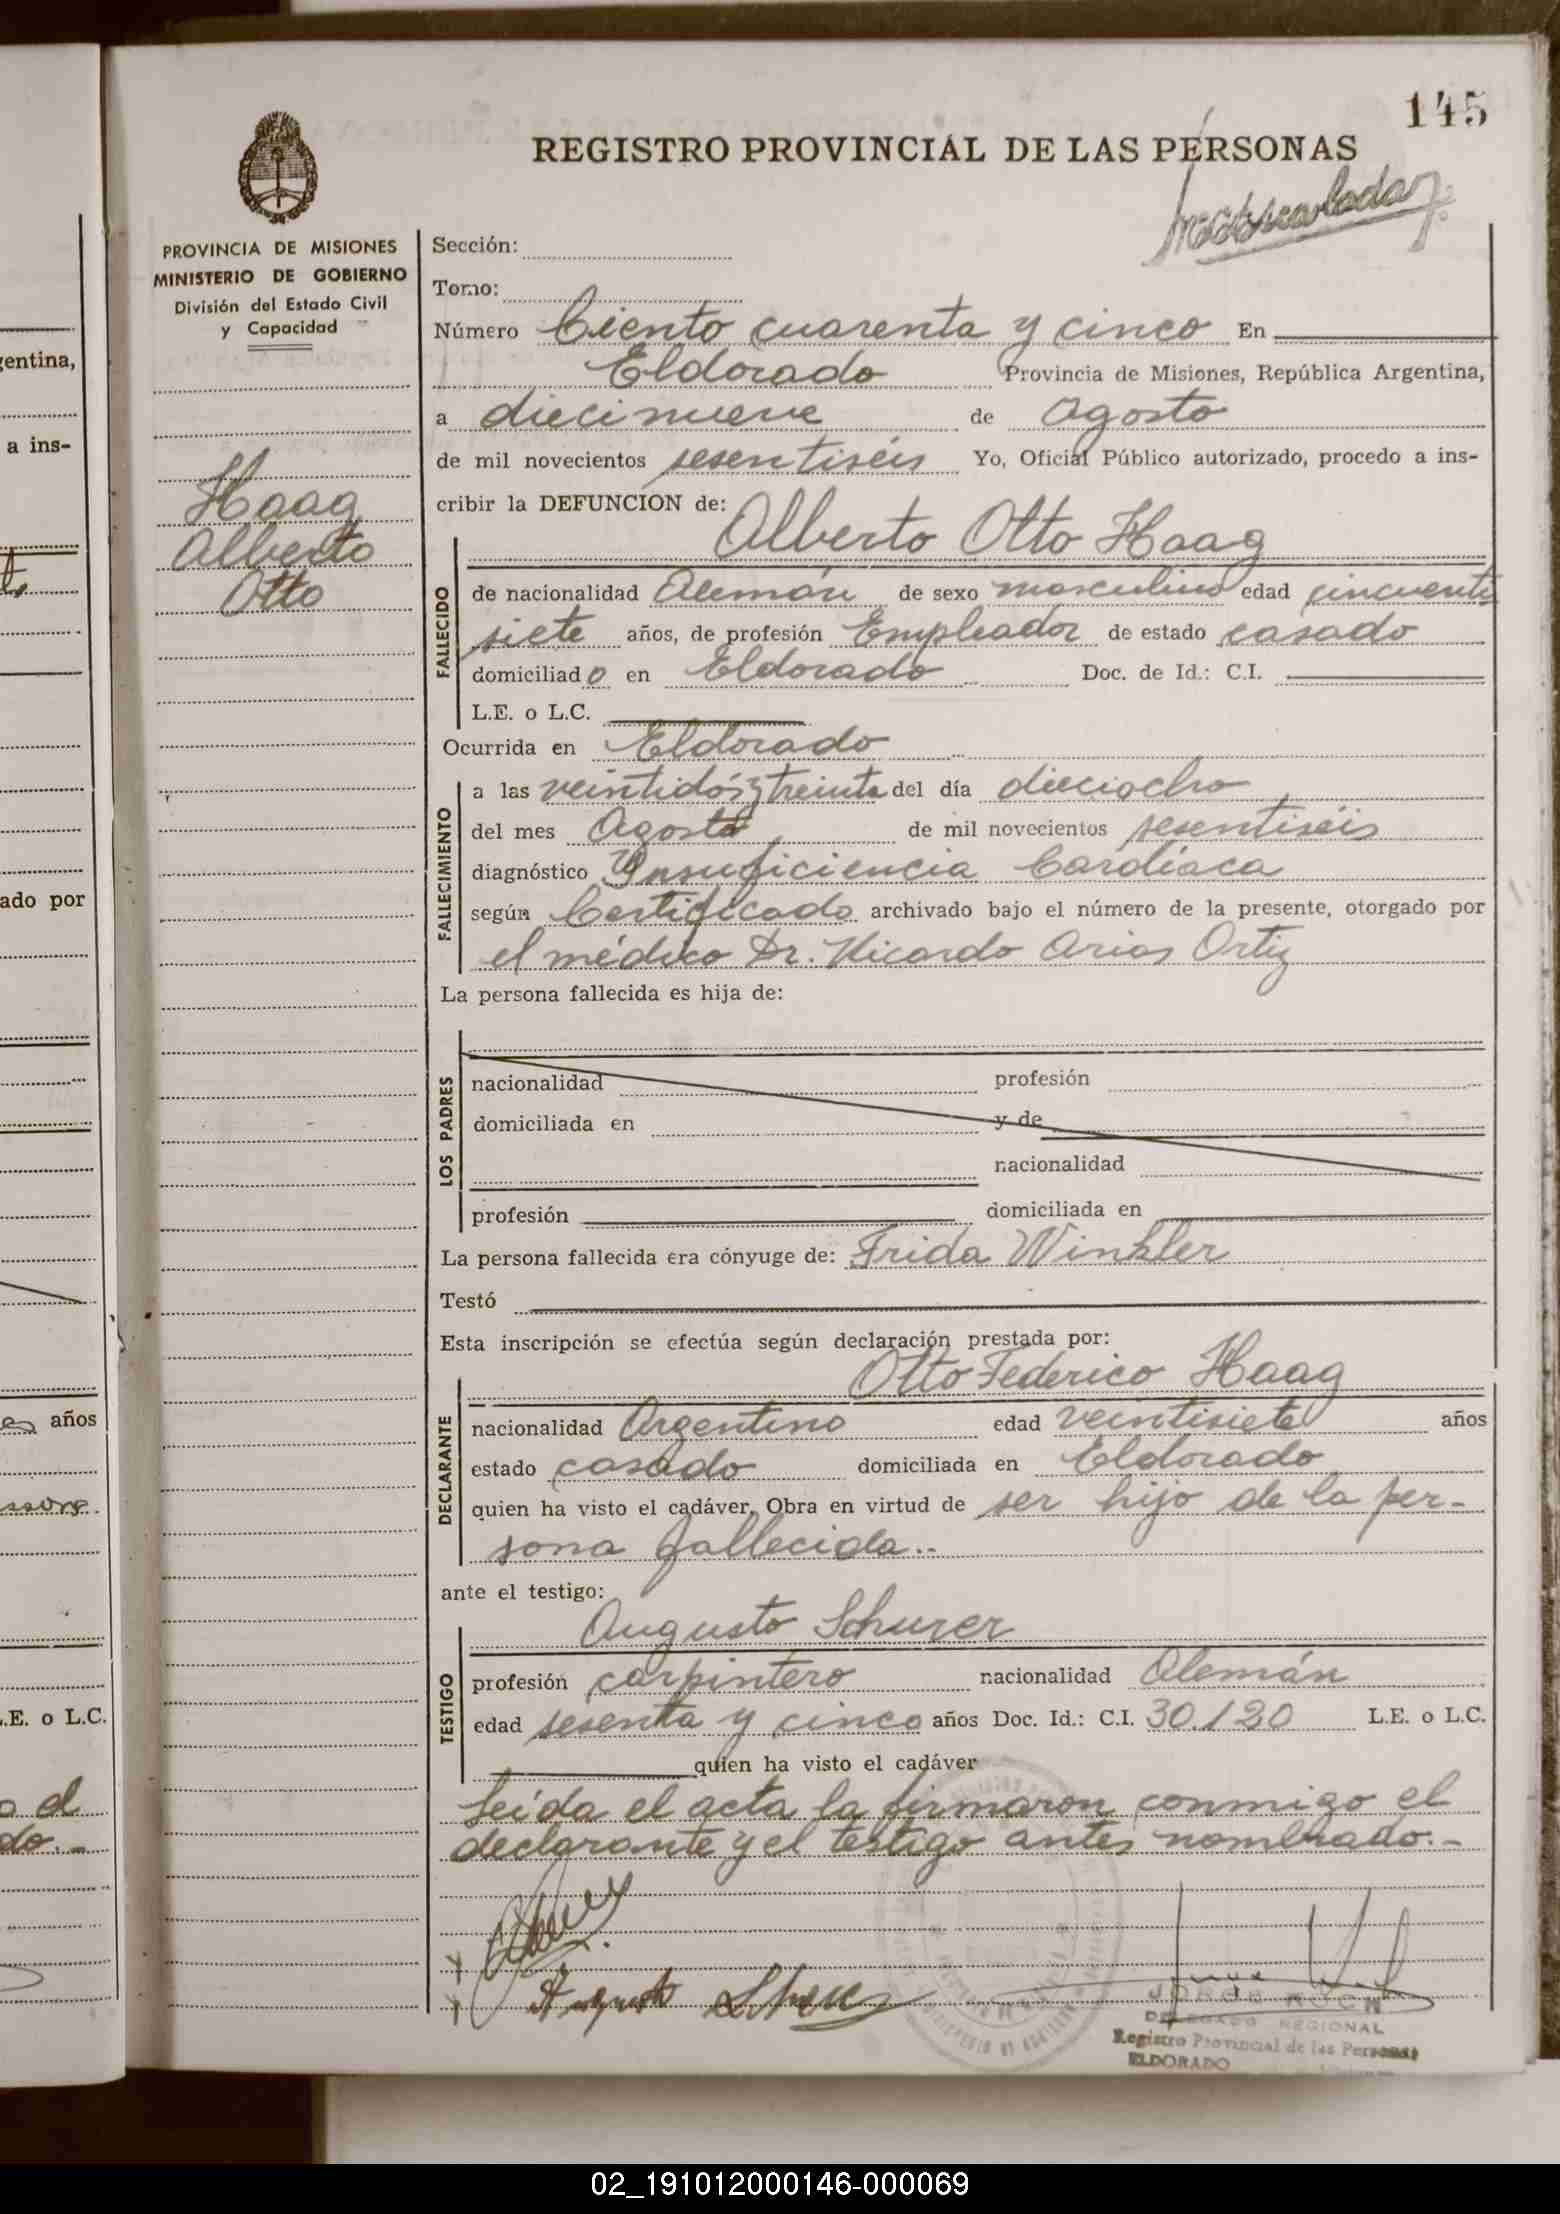 145
REGISTRO PROVINCIAL DE LAS PERSONAS
PROVINCIA DE MISIONES
MINISTERIO DE GOBIERNO
División del Estado Civil
y Capacidad
Haag
Alberto
Otto
Sección:
Tomo:
Número Ciento cuarenta y cinco En
Eldorado Provincia de Misiones, República Argentina,
a diecinueve de Agosto
de mil novecientos sesentiséis Yo, Oficial Público autorizado, procedo a ins-
cribir la DEFUNCION de:
Alberto Otto Haag
FALLECIDO
de nacionalidad Alemán de sexo masculino edad cincuenti
siete años, de profesión Empleador de estado casado
domiciliado en Eldorado Doc. de Id.: C.I.
L.E. o L.C.
Ocurrida en Eldorado
FALLECIMIENTO
a las veintidós y treinta del día dieciocho
del mes Agosto de mil novecientos sesentiséis
diagnóstico Insuficiencia Cardíaca
según Certificado archivado bajo el número de la presente, otorgado por
el médico Dr. Ricardo Arias Ortiz
La persona fallecida es hija de:
LOS PADRES
nacionalidad profesión
domiciliada en y de
nacionalidad
profesión domiciliada en
La persona fallecida era cónyuge de: Frida Winkler
Testó
Esta inscripción se efectúa según declaración prestada por:
Otto Federico Haag
DECLARANTE
nacionalidad Argentino edad veintisiete años
estado casado domiciliada en Eldorado
quien ha visto el cadáver. Obra en virtud de ser hijo de la per-
sona fallecida..
ante el testigo:
Augusto Schurer
TESTIGO
profesión carpintero nacionalidad Alemán
edad sesenta y cinco años Doc. Id.: C.I. 30.120 L.E. o L.C.
quien ha visto el cadáver
Leída el acta la firmaron conmigo el
declarante y el testigo antes nombrado.-
Augusto
DELEGADO REGIONAL
Registro Provincial de las Personas
ELDORADO
entina,
a ins-
ado por
años
.E. o L.C.
02_191012000146-000069